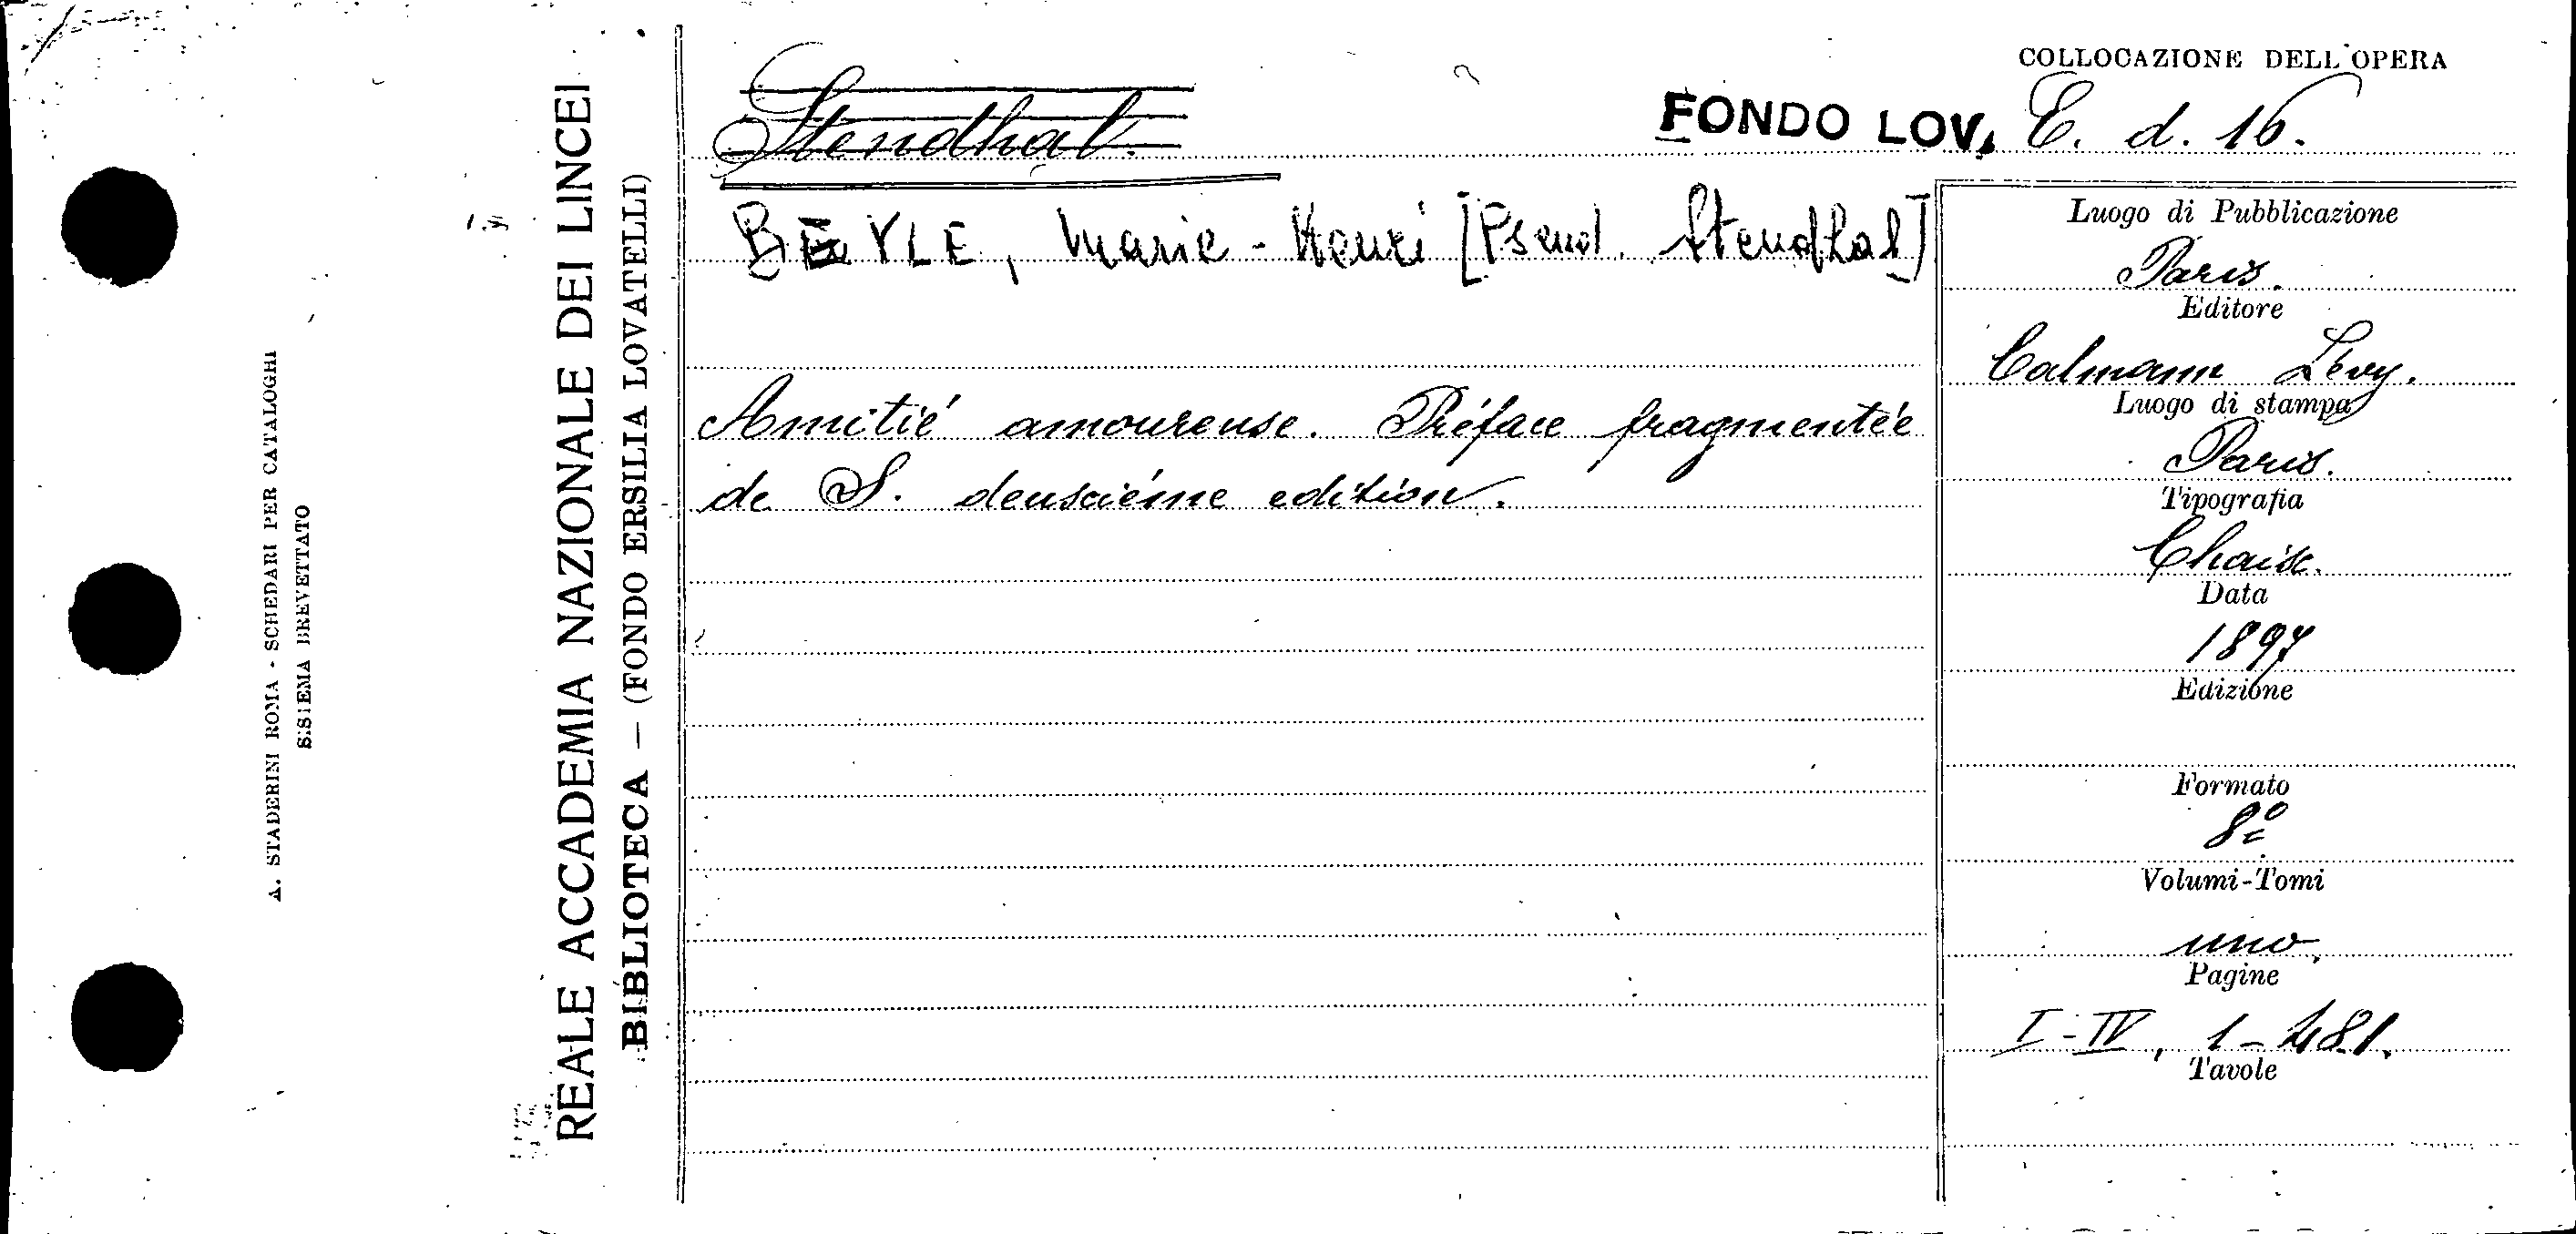 COLLOCAZIONE DELL'OPERA
FONDO LOV. E. d. 16.
Stendhal.
BEYLE, Marie-Henri [Pseud. Stendhal]
Amitié amoureuse. Préface fragmentée
de S. deuscième edition.
Luogo di Pubblicazione
Paris.
Editore
Calmann Lévy.
Luogo di stampa
Paris.
Tipografia
Chaix.
Data
1897
Edizione
Formato
8º
Volumi-Tomi
uno
Pagine
I-IV, 1-481.
Tavole
REALE ACCADEMIA NAZIONALE DEI LINCEI
BIBLIOTECA — (FONDO ERSILIA LOVATELLI)
A. STADERINI ROMA - SCHEDARI PER CATALOGHI
SISTEMA BREVETTATO